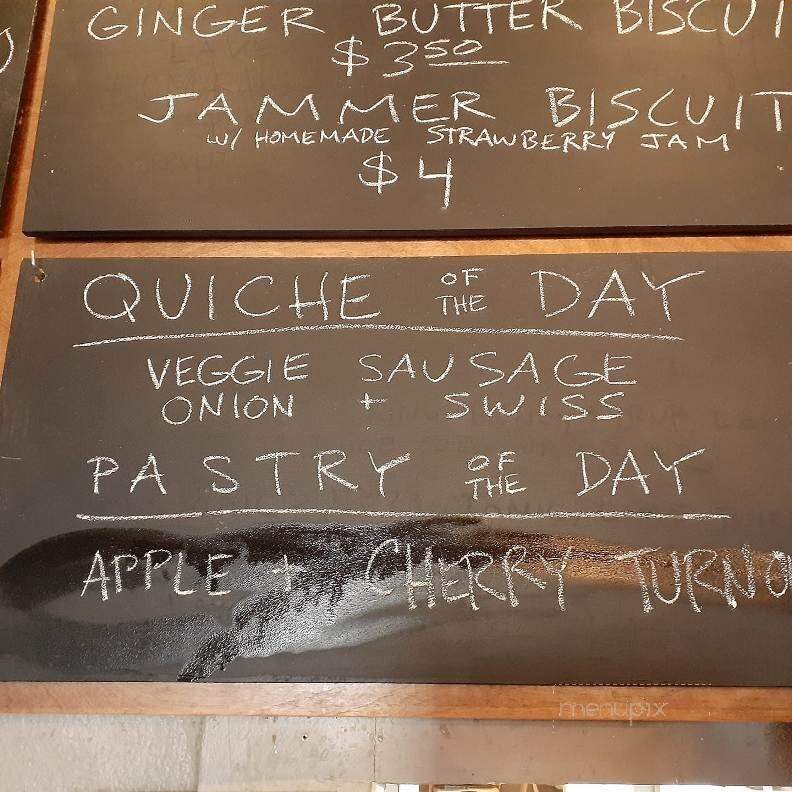 GINGER BUTTER BISCUI
$3 50
JAMMER BISCUIT
W/ HOMEMADE STRAWBERRY JAM
$4
QUICHE OF THE DAY
VEGGIE SAUSAGE
ONION + SWISS
PASTRY OF THE DAY
APPLE + CHERRY TURNO
menupix